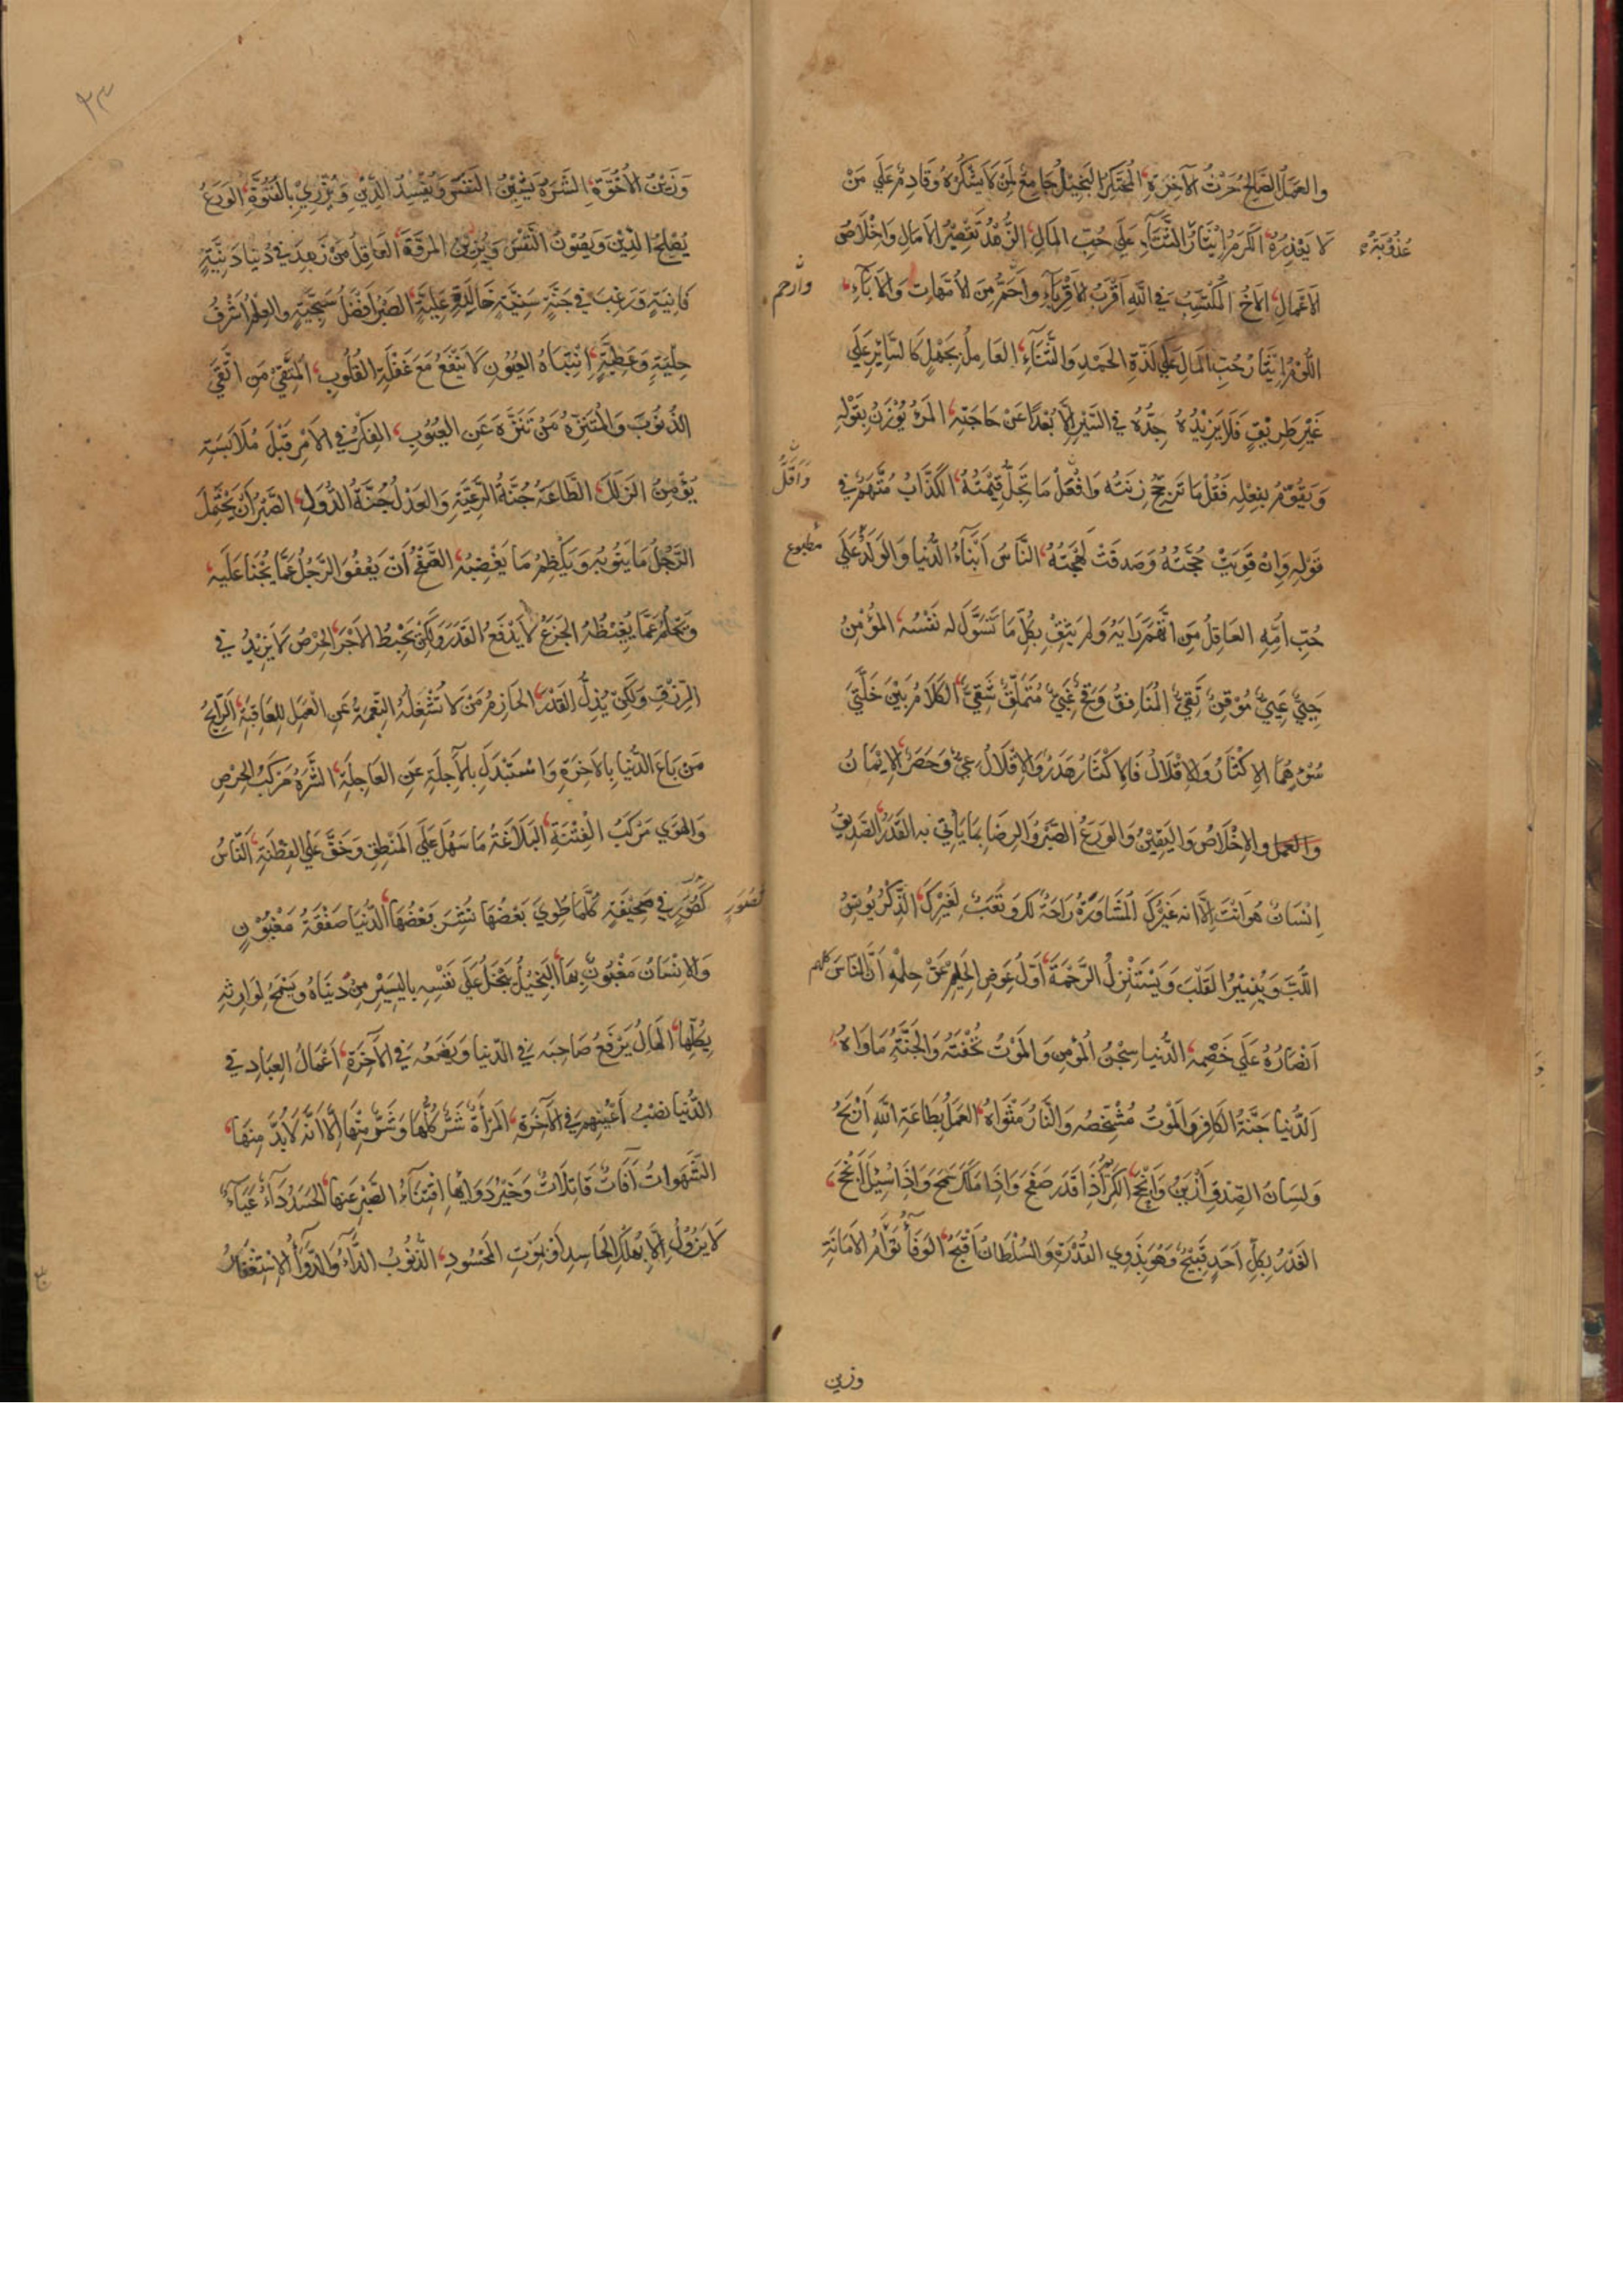 والعَمَلُ الصَّالِحُ حَرْثُ الآخِرَةِ، المُحْتَكِرُ البَخِيْلُ جَامِعٌ لِمَنْ لَا يَشْكُرُهُ وَقَادِمٌ عَلَي مَنْ
لَا يَعْذِرُهُ، الكَرَمُ اِيْثَارُ الثَّنَاءِ عَلَي حُبِّ المَالِ، الزُّهْدُ تَقْصِيْرُ الاَمَالِ وَاِخْلَاصُ
الاَعْمَالِ، الاَخُ المُكْتَسَبُ فِي اللّٰهِ اَقْرَبُ الاَقْرِبَآءِ وَاَحَمُّ مِنَ الاُمَّهَاتِ وَالاٰبَآءِ،
وارحم
اللُّؤْمُ اِيْثَارُ حُبِّ المَالِ عَلَي لَذَّةِ الحَمْدِ وَالثَّنَآءِ، العَامِلُ بِجَهْلٍ كَالسَّايِرِ عَلَي
غَيْرِ طَرِيْقٍ فَلَا يَزِيْدُهُ جِدُّهُ فِي السَّيْرِ اِلَّا بُعْدًا عَنْ حَاجَتِهِ، المَرْءُ يُوْزَنُ بِقَوْلِهِ
وَيُقَوَّمُ بِفِعْلِهِ فَقُلْ مَا تَرَجَّحُ زِنَتُه وَافْعَلْ مَا تَجِلُّ قِيْمَتُهُ، الكَذَّابُ مُتَّهَمٌ فِي
قَوْلِهِ وَاِنْ قَوِيَتْ حُجَّتُهُ وَصَدَقَتْ لَهْجَتُهُ، النَّاسُ اَبْنَآءُ الدُّنْيَا وَالوَلَدُ عَلَي
مطبوع
حُبِّ اُمِّهِ، العَاقِلُ مَنِ اتَّهَمَ رَايَهُ وَلَمْ يَثِقْ بِكُلِّ مَا تُسَوِّلُ لَه نَفْسُه، المُؤْمِنُ
حَيِيٌّ غَنِيٌّ مُوْقِنٌ تَقِيٌّ، المُنَافِقُ وَقِحٌ غَبِيٌّ مُتَمَلِّقٌ شَقِيٌّ، الكَلَامُ بَيْنَ خَلَّتَيْ
سُوْءٍ هُمَا الاِكْثَارُ وَالاِقْلَالُ فَالاِكْثَارُ هَذَرٌ وَالاِقْلَالُ عِيٌّ وَحَصَرٌ، الاِيْمَانُ
وَالعَمَلُ وَالاِخْلَاصُ وَاليَقِيْنُ وَالوَرَعُ الصَّبْرُ وَالرِضَا بِمَا يَاْتِي بِه القَدَرُ، الصَّدِيْقُ
اِنْسَانٌ هُوَ اَنْتَ اِلَّا اَنَّه غَيْرُكَ، المُشَاوَرَةُ رَاحَةٌ لَكَ وَتَعَبٌ لِغَيْرِكَ، الذِّكْرُ يُونِسُ
اللُّبَّ وَيُنِيْرُ القَلْبَ وَيَسْتَنْزِلُ الرَّحْمَةَ، اَوَّلُ عِوَضِ الحَلِيْمِ عَنْ حِلْمِهِ اَنَّ النَّاسَ كلهم
اَنْصَارُهُ عَلَي خَصْمِهِ، الدُّنْيَا سِجْنُ المُؤْمِنِ وَالمَوْتُ تُحْفَتُهُ وَالجَنَّةُ مَاوَاهُ،
اَلدُّنْيَا جَنَّةُ الكَافِرِ وَالمَوْتُ مُشْخِصُه وَالنَّارُ مَثْوَاهُ، العَمَلُ بِطَاعَةِ اللّٰهِ اَرْبَحُ
وَلِسَانُ الصِّدْقِ اَزْيَنُ وَاَنْجَحُ، الكَرِيْمُ اِذَا قَدَرَ صَفَحَ وَاِذَا مَلَكَ سَمَحَ وَاِذَا سُئِلَ اَنْجَحَ،
الغَدْرُ بِكُلِّ اَحَدٍ قَبِيْحٌ وَهُوَ بِذَوِي القُدْرَةِ وَالسُلْطَانِ اَقْبَحُ، الوَفَآءُ تَوْاَمُ الاَمَانَةِ
وزين
٢٣
وَزَيْنُ الاُخُوَّةِ، الشَّرَهُ يَشِيْنُ النَفْسَ وَيُفْسِدُ الدِّيْنَ وَيُزْرِيْ بِالفُتُوَّةِ، الوَرَعُ
يُصْلِحُ الدِّيْنَ وَيَصُوْنُ النَّفْسَ وَيَزِيْنُ المُرُوَّةَ، العَاقِلُ مَنْ زَهِدَ فِي دُنْيَا دَنِيَّةٍ
فَانِيَةٍ وَرَغِبَ فِي جَنَّةٍ سَنِيَّةٍ خَالِدَةٍ عَلِيَّةٍ، الصَّبْرُ اَفْضَلُ سَجِيَّةٍ وَالعِلْمُ اَشْرَفُ
حِلْيَةٍ وَعَطِيَّةٍ، اِنْتِبَاهُ العُيُوْنِ لَا يَنْفَعُ مَعَ غَفْلَةِ القُلُوْبِ، المُتَّقِيْ مَنِ اتَّقَي
الذُّنُوْبَ وَالمُتَنَزِّهُ مَنْ تَنَزَّهَ عَنِ العُيُوْبِ، الفِكْرُ فِي الاَمْرِ قَبْلَ مُلَابَسَتِهِ
يُؤْمِنُ الزَّلَلَ، الطَّاعَةُ جُنَّةُ الرَّعِيَّةِ وَالعَدْلُ جُنَّةُ الدُّوَلِ، الصَّبْرُ اَنْ يَحْتَمِلَ
الرَّجُلُ مَا يَنُوْبُه وَيَكْظِمُ مَا يُغْضِبُه، الصَّفْحُ اَنْ يَعْفُوَ الرَّجُلُ عَمَّا يُجْنَا عَلَيْهِ
وَيَحْلُمُ عَمَّا يُغِيْظُهُ، الجَزَعُ لَا يَدْفَعُ القَدَرَ وَلٰكِنْ يُحْبِطُ الاَجْرَ، الحِرْصُ لَا يَزِيْدُ فِي
الرِّزْقِ وَلٰكِنْ يُذِلُّ القَدْرَ، الحَازِمُ مَنْ لَا تَشْغَلُهُ النِّعْمَةُ عَنِ العَمَلِ لِلعَاقِبَةِ، الرَّابِحُ
مَنْ بَاعَ الدُّنْيَا بِالاٰخِرَةِ وَاسْتَبْدَلَ بِالاٰجِلَةِ عَنِ العَاجِلَةِ، الشَّرَهُ مَرْكَبُ الحِرْصِ
وَالهَوَي مَرْكَبُ الفِتْنَةِ، البَلَاغَةُ مَا سَهُلَ عَلَي المَنْطِقِ وَخَفَّ عَلَي الفِطْنَةِ، النَّاسُ
كَصُوَرٍ فِي صَحِيْفَةٍ كُلَّمَا طُوِيَ بَعْضُهَا نُشِرَ بَعْضُهَا، الدُّنْيَا صَفْقَةُ مَغْبُوْنٍ
وَالاِنْسَانُ مَغْبُوْنٌ بِهَا، البَخِيْلُ يَبْخَلُ عَلَي نَفْسِه بِاليَسِيْرِ مِنْ دُنْيَاهُ وَيَسْمَحُ لِوَارِثِهِ
بِكُلِّهَا، المَالُ يَرْفَعُ صَاحِبَه فِي الدُّنْيَا وَيَضَعُه فِي الآخِرَةِ، اَعْمَالُ العِبَادِ فِي
الدُّنْيَا نُصْبُ اَعْيُنِهِمْ فِي الآخِرَةِ، المَرْاَةُ شَرٌّ كُلُّهَا وَشَرٌّ مِنْهَا اِلَّا اَنَّهُ لَا بُدَّ مِنْهَا،
الشَّهَوَاتُ اٰفَاتٌ قَاتِلَاتٌ وَخَيْرُ دَوَائِهَا اِقْتِنَاءُ الصَّبْرِ عَنْهَا، الحَسَدُ دَآءٌ عَيَآءٌ
لَا يَزُوْلُ اِلَّا بِهُلْكِ الحَاسِدِ اَوْ بِمَوْتِ المَحْسُوْدِ، الذُّنُوْبُ الدَّآءُ وَالدَّوَآءُ الاِسْتِغْفَارُ